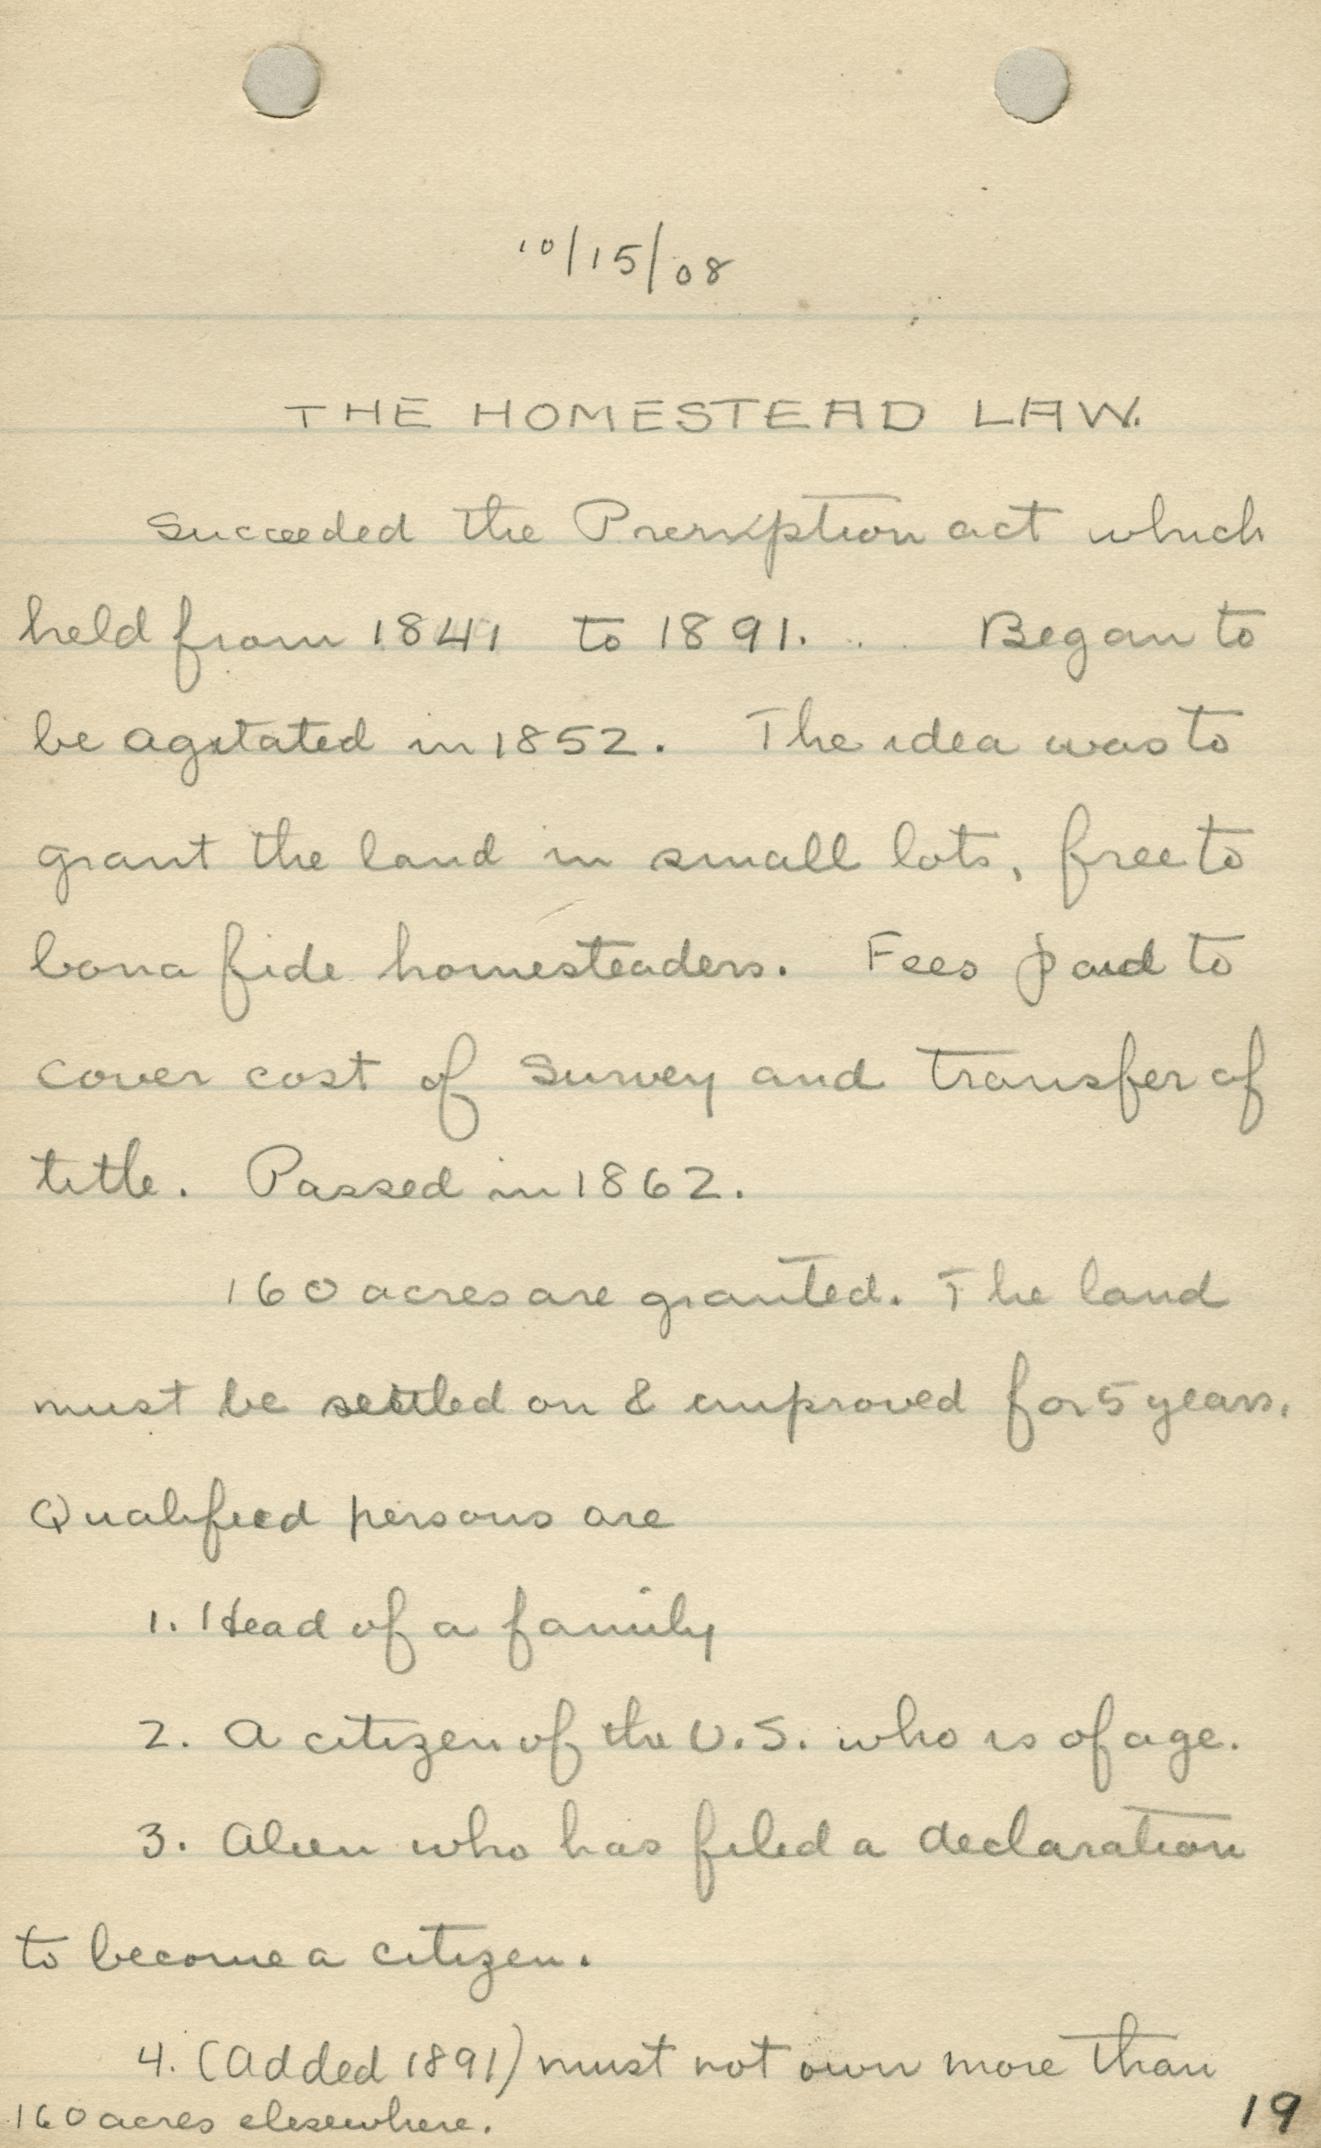 10/15/08
THE HOMESTEAD LAW.
Succeeded the Preemption act which
held from 1841 to 1891. Began to
be agitated in 1852. The idea was to
grant the land in small lots, free to
bona fide homesteaders. Fees paid to
cover cost of survey and transfer of
title. Passed in 1862.
160 acres are granted. The land
must be settled on & improved for 5 years.
Qualified persons are
1. Head of a family
2. A citizen of the U.S. who is of age.
3. Alien who has filed a declaration
to become a citizen.
4. (Added 1891) must not own more than
160 acres elsewhere.
19